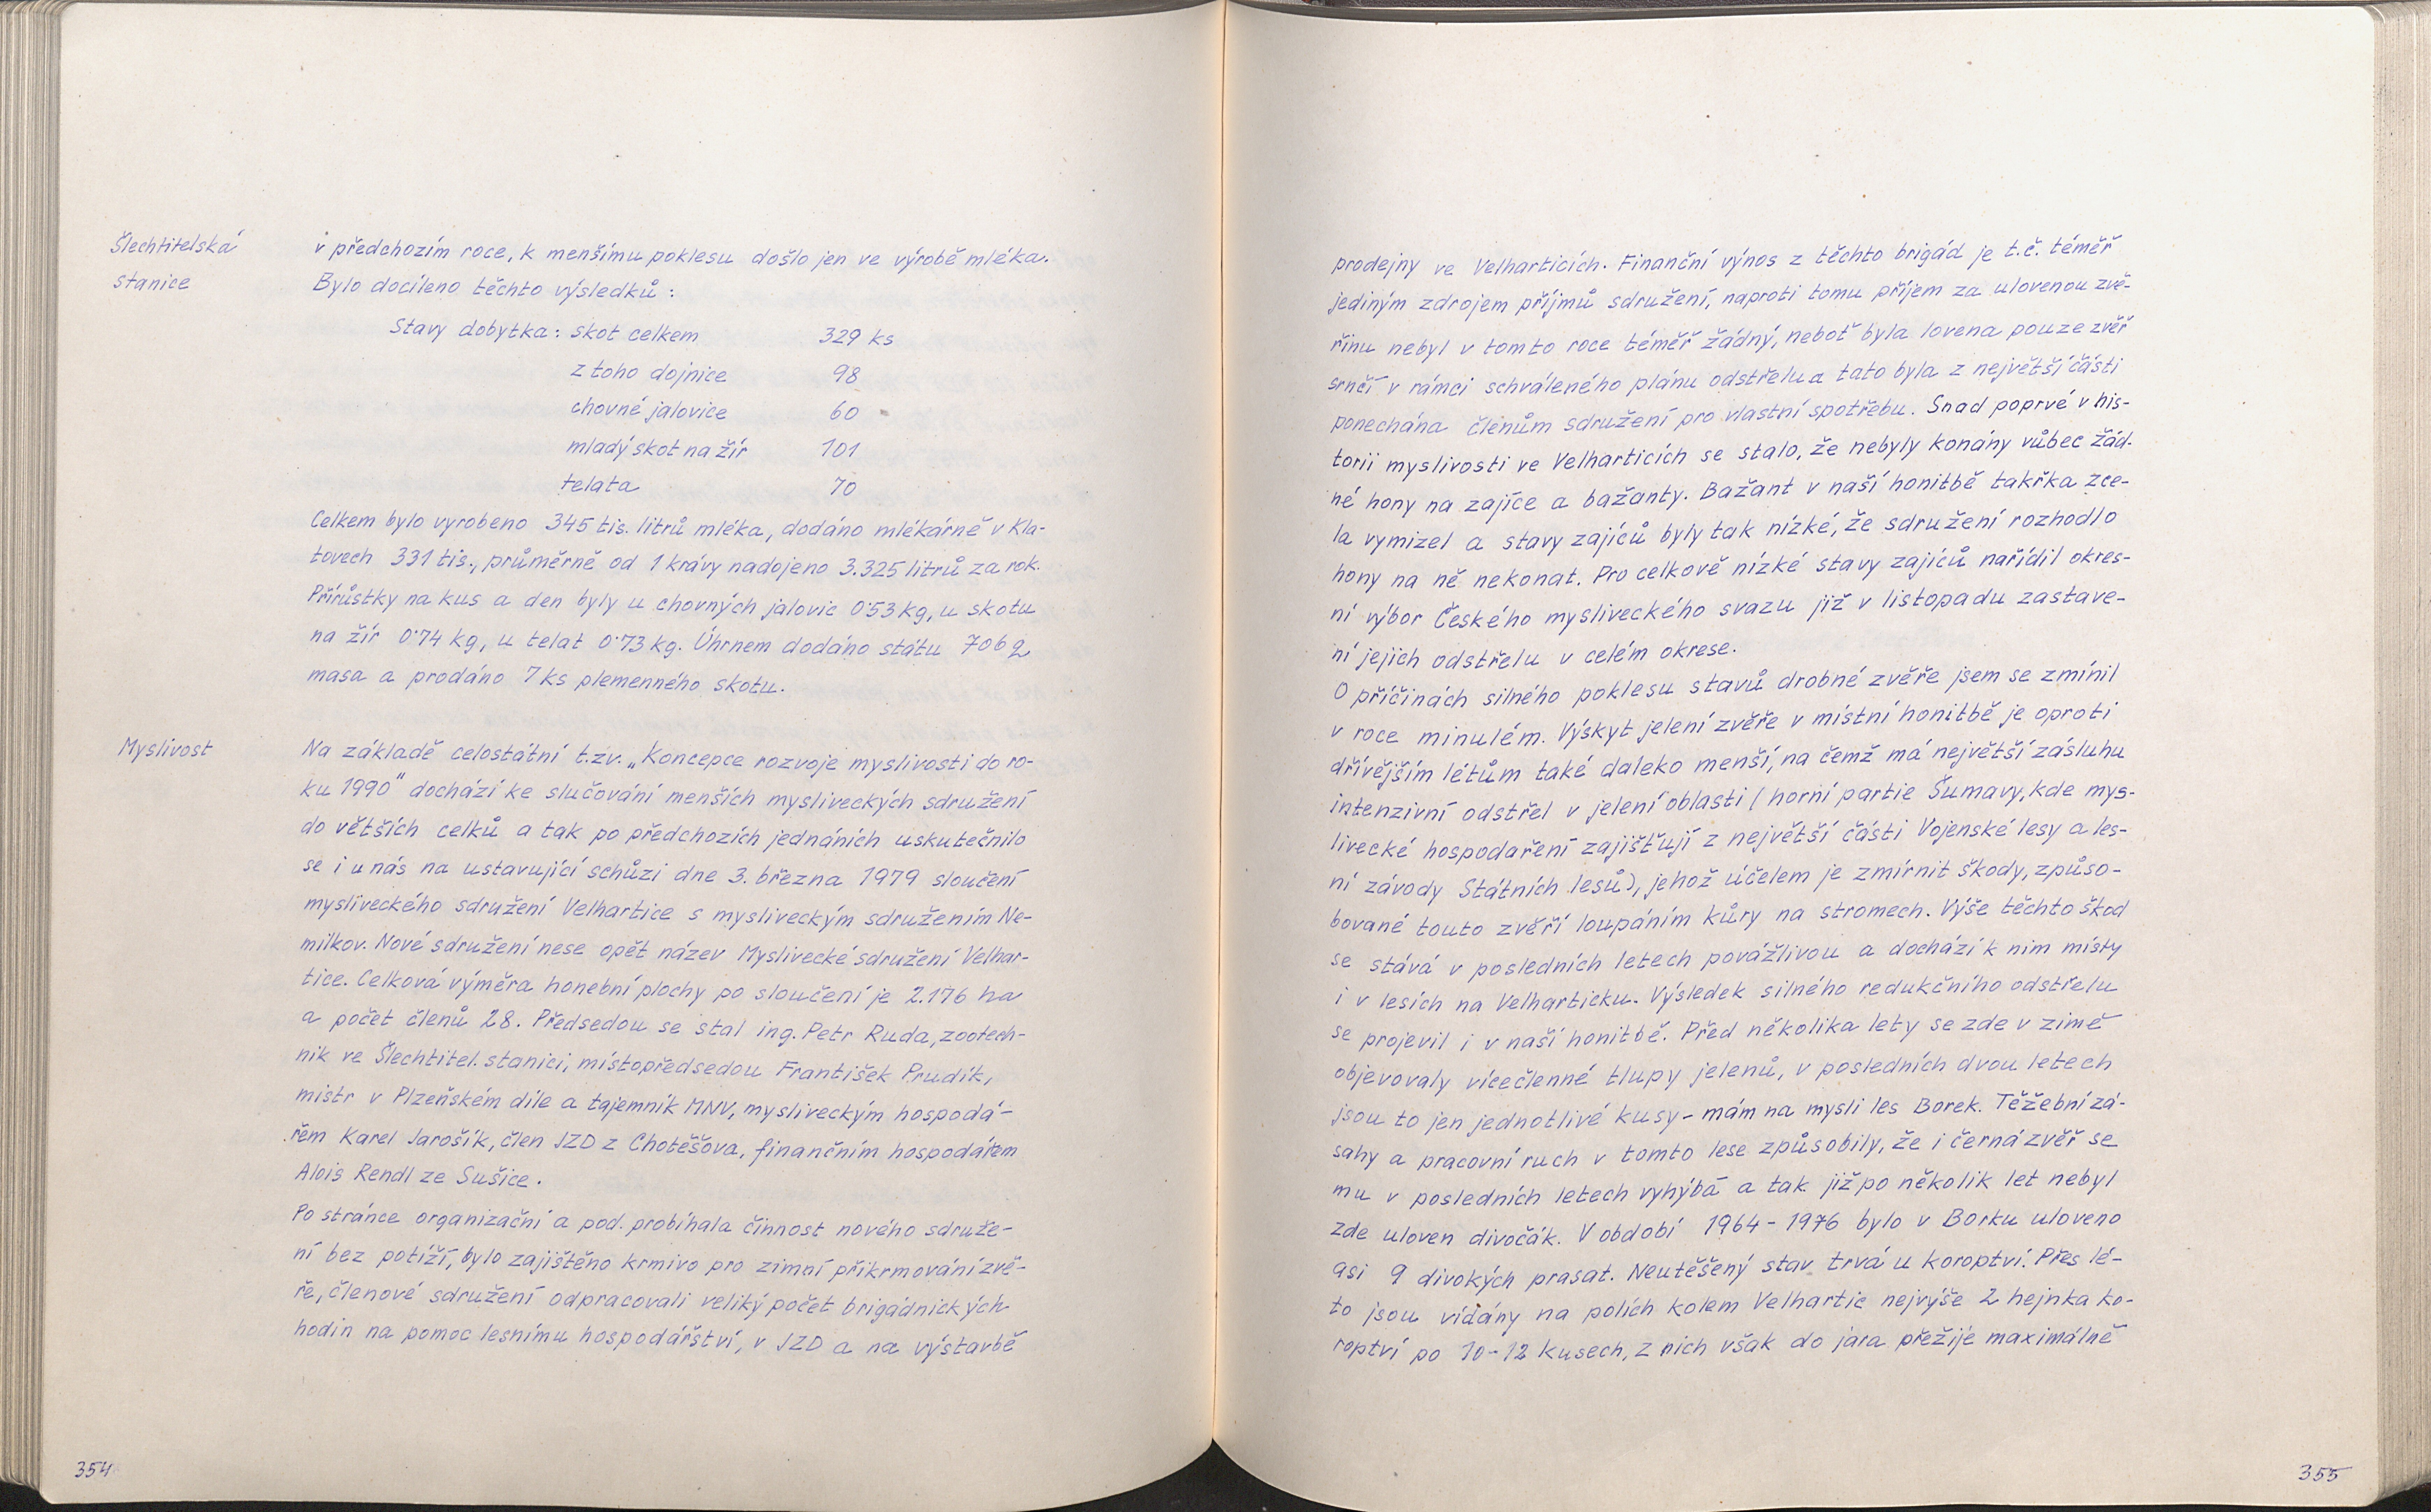 Šlechtitelská
stanice
v předchozím roce, k menšímu poklesu došlo jen ve výrobě mléka.
Bylo docíleno těchto výsledků:
Stavy dobytka: skot celkem 329 ks
z toho dojnice 98
chovné jalovice 60
mladý skot na žír 101
telata 70
Celkem bylo vyrobeno 345 tis. litrů mléka, dodáno mlékárně v Kla-
tovech 331 tis., průměrně od 1 krávy nadojeno 3.325 litrů za rok.
Přírůstky na kus a den byly u chovných jalovic 0'53 kg, u skotu
na žír 0'74 kg, u telat 0'73 kg. Úhrnem dodáno státu 706 q
masa a prodáno 7 ks plemenného skotu.
Myslivost
Na základě celostátní t.zv. „Koncepce rozvoje myslivosti do ro-
ku 1990" dochází ke slučování menších mysliveckých sdružení
do větších celků a tak po předchozích jednáních uskutečnilo
se i u nás na ustavující schůzi dne 3. března 1979 sloučení
mysliveckého sdružení Velhartice s mysliveckým sdružením Ne-
milkov. Nové sdružení nese opět název Myslivecké sdružení Velhar-
tice. Celková výměra honební plochy po sloučení je 2.176 ha
a počet členů 28. Předsedou se stal ing. Petr Ruda, zootech-
nik ve Šlechtitel. stanici, místopředsedou František Prudík,
mistr v Plzeňském díle a tajemník MNV, mysliveckým hospodá-
řem Karel Jarošík, člen JZD z Chotěšova, finančním hospodářem
Alois Rendl ze Sušice.
Po stránce organizační a pod. probíhala činnost nového sdruže-
ní bez potíží, bylo zajištěno krmivo pro zimní přikrmování zvě-
ře, členové sdružení odpracovali veliký počet brigádnických
hodin na pomoc lesnímu hospodářství, v JZD a na výstavbě
354
prodejny ve Velharticích. Finanční výnos z těchto brigád je t.č. téměř
jediným zdrojem příjmů sdružení, naproti tomu příjem za ulovenou zvě-
řinu nebyl v tomto roce téměř žádný, neboť byla lovena pouze zvěř
srnčí v rámci schváleného plánu odstřelu a tato byla z největší části
ponechána členům sdružení pro vlastní spotřebu. Snad poprvé v his-
torii myslivosti ve Velharticích se stalo, že nebyly konány vůbec žád-
né hony na zajíce a bažanty. Bažant v naší honitbě takřka zce-
la vymizel a stavy zajíců byly tak nízké, že sdružení rozhodlo
hony na ně nekonat. Pro celkově nízké stavy zajíců nařídil okres-
ní výbor Českého mysliveckého svazu již v listopadu zastave-
ní jejich odstřelu v celém okrese.
O příčinách silného poklesu stavů drobné zvěře jsem se zmínil
v roce minulém. Výskyt jelení zvěře v místní honitbě je oproti
dřívějším létům také daleko menší, na čemž má největší zásluhu
intenzivní odstřel v jelení oblasti (horní partie Šumavy, kde mys-
livecké hospodaření zajišťují z největší části Vojenské lesy a les-
ní závody Státních lesů), jehož účelem je zmírnit škody, způso-
bované touto zvěří loupáním kůry na stromech. Výše těchto škod
se stává v posledních letech povážlivou a dochází k nim místy
i v lesích na Velharticku. Výsledek silného redukčního odstřelu
se projevil i v naší honitbě. Před několika lety se zde v zimě
objevovaly vícečlenné tlupy jelenů, v posledních dvou letech
jsou to jen jednotlivé kusy - mám na mysli les Borek. Těžební zá-
sahy a pracovní ruch v tomto lese způsobily, že i černá zvěř se
mu v posledních letech vyhýbá a tak již po několik let nebyl
zde uloven divočák. V období 1964 - 1976 bylo v Borku uloveno
asi 9 divokých prasat. Neutěšený stav trvá u koroptví. Přes lé-
to jsou vídány na polích kolem Velhartic nejvýše 2 hejnka ko-
roptví po 10-12 kusech, z nich však do jara přežije maximálně
355